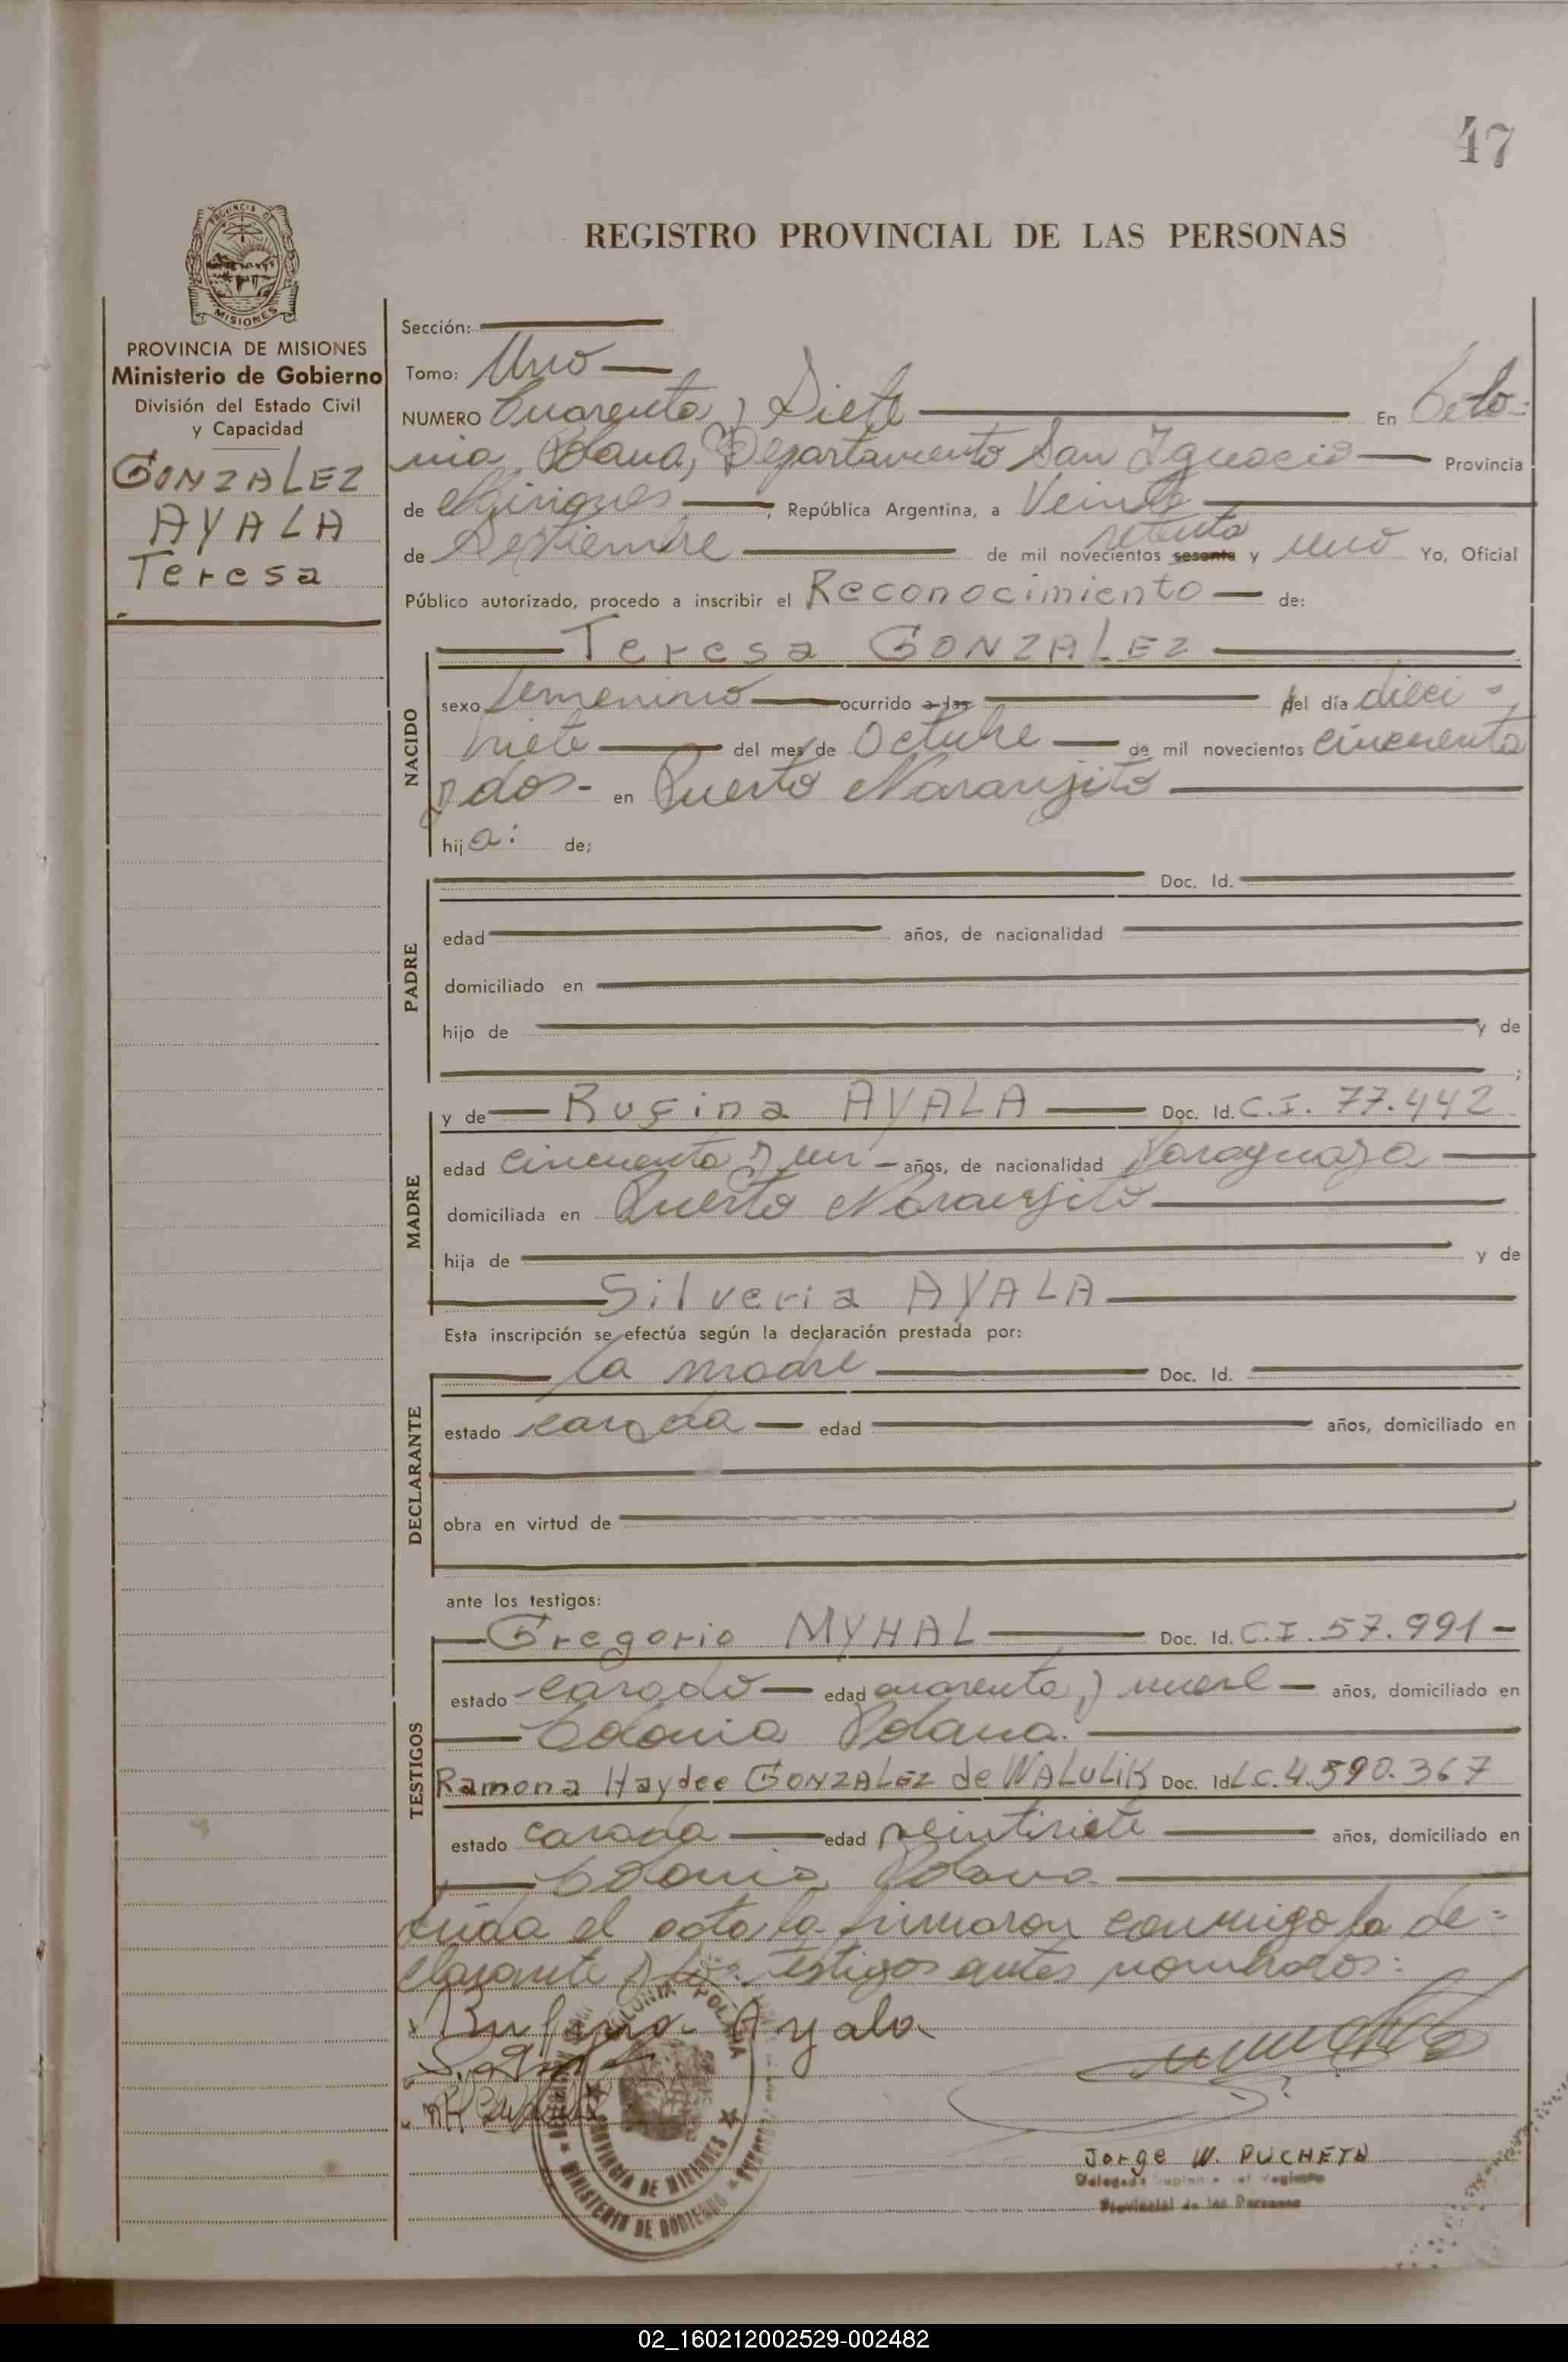 47
REGISTRO PROVINCIAL DE LAS PERSONAS
PROVINCIA DE MISIONES
Ministerio de Gobierno
División del Estado Civil
y Capacidad
GONZALEZ
AYALA
Teresa
Sección:
Tomo: Uno
NUMERO Cuarenta y Siete En Colo-
nia Polana, Departamento San Ignacio Provincia
de Misiones, República Argentina, a Veinte
setenta
de Septiembre de mil novecientos sesenta y uno Yo, Oficial
Público autorizado, procedo a inscribir el Reconocimiento de:
Teresa GONZALEZ
NACIDO
sexo femenino ocurrido a las del día dieci-
siete del mes de Octubre de mil novecientos cincuenta
y dos- en Puerto Naranjito
hija: de;
PADRE
Doc. Id.
edad años, de nacionalidad
domiciliado en
hijo de y de
;
MADRE
y de Rufina AYALA Doc. Id. C.I. 77.442
edad cincuenta y un años, de nacionalidad Paraguaya
domiciliada en Puerto Naranjito
hija de y de
Silveria AYALA
Esta inscripción se efectúa según la declaración prestada por:
DECLARANTE
La madre Doc. Id.
estado casada edad años, domiciliado en
obra en virtud de
ante los testigos:
TESTIGOS
Gregorio MYHAL Doc. Id. C.I. 57.991-
estado casado edad cuarenta y nueve años, domiciliado en
Colonia Polana.
Ramona Haydee GONZALEZ de WALULIK Doc. Id. L.C. 4.590.367
estado casada edad veintisiete años, domiciliado en
Colonia Polana
Leída el acta la firmaron conmigo la de-
clarante y los testigos antes nombrados:
Rufina Ayala
COLONIA POLANA
PROVINCIA DE MISIONES
MINISTERIO DE GOBIERNO
Jorge W. PUCHETA
Delegado Suplente del Registro
Provincial de las Personas
02_160212002529-002482